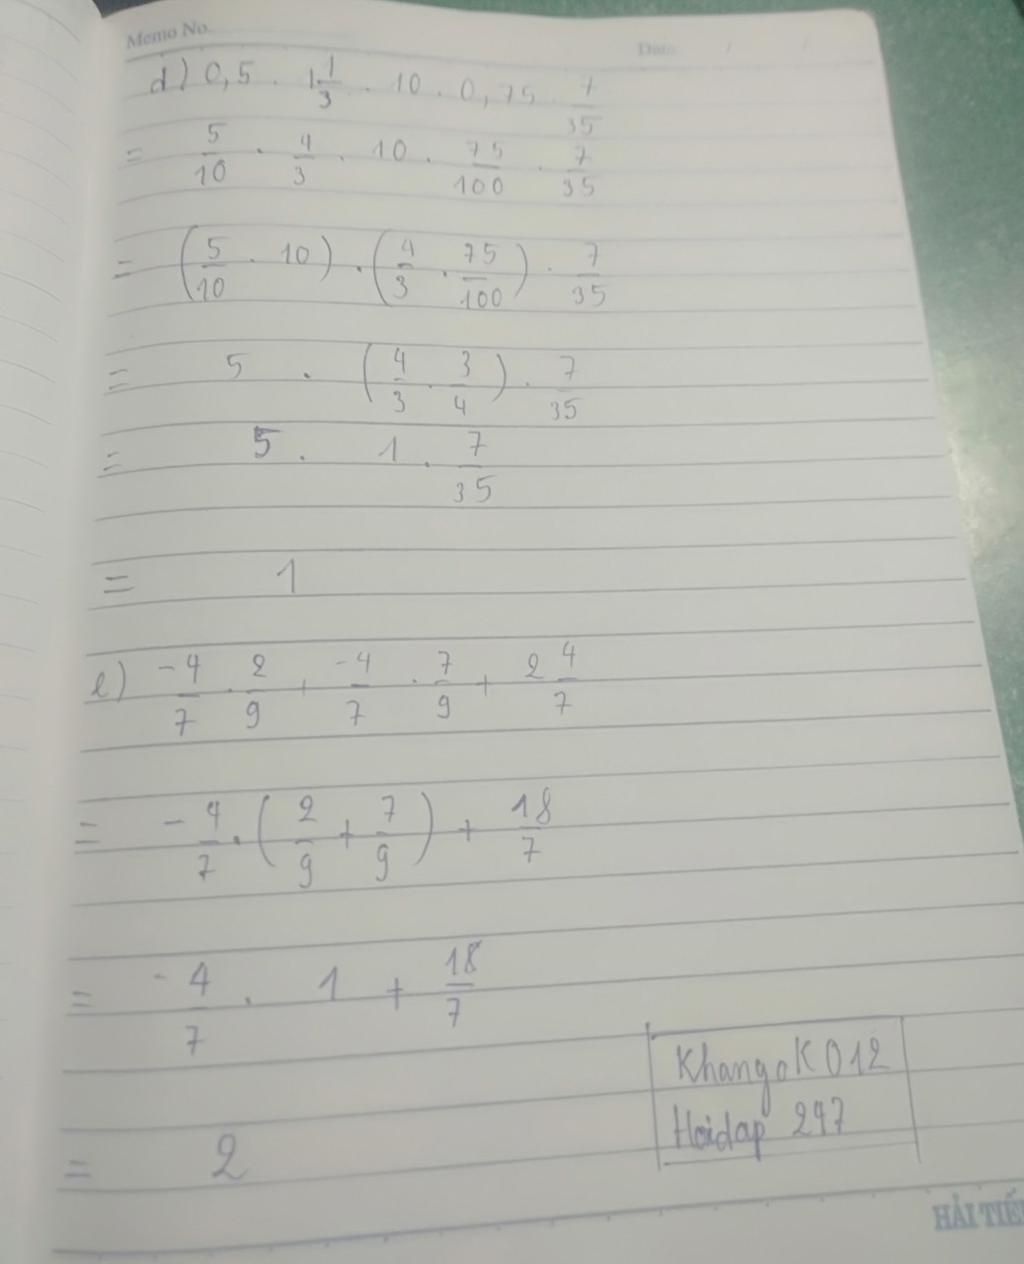 Memo No.
Date / /
d) 0,5 . 1 1/3 . 10 . 0,75 . 7/35
= 5/10 . 4/3 . 10 . 75/100 . 7/35
= (5/10 . 10) . (4/3 . 75/100) . 7/35
= 5 . (4/3 . 3/4) . 7/35
= 5 . 1 . 7/35
= 1
e) -4/7 . 2/9 + -4/7 . 7/9 + 2 4/7
= -4/7 . (2/9 + 7/9) + 18/7
= -4/7 . 1 + 18/7
= 2
KhangoK012
Hoidap 247
HẢI TIẾ